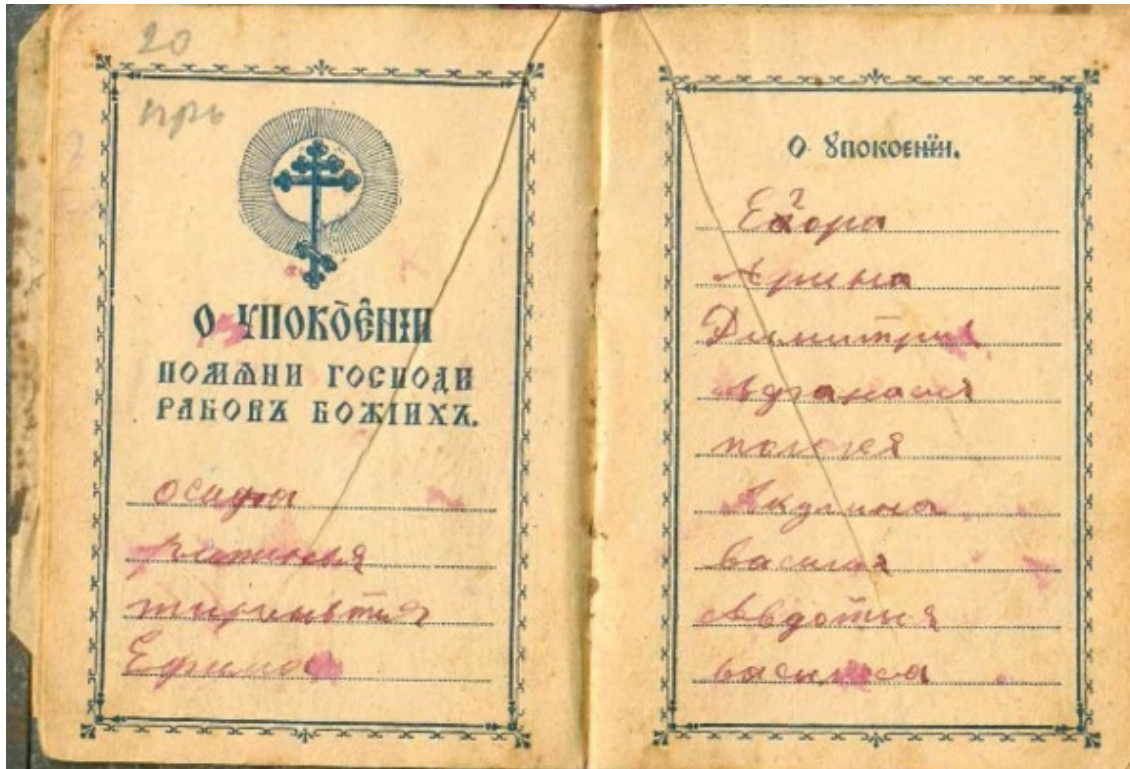 20
прь
О УПОКОЕНІИ
ПОМѦНИ ГОСПОДИ
РАБОВЪ БОЖІИХЪ.
осифа
тирентия
Ефима
О Ꙋпокоенїи.
Егора
Арина
Димитрия
Афанасия
палагея
Акулина
василия
Авдотия
василиса